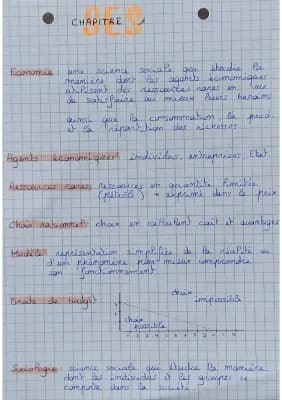 SES
CHAPITRE
Economie une science sociale qui étudie la
manière dont les agents économiques
utilisent des ressources rares en vue
de satisfaire au mieux leurs besoins
ainsi que la consommation, la prod
et la répartition des richesses
Agents économiques individus, entreprises, Etat
Ressources rares ressources en quantité limitée
(pétrole) → exprimé dans le prix
Choix rationnel choix en calculant coût et avantages
Modèle représentation simplifiée de la réalité ou
d'un phénomène pour mieux comprendre
son fonctionnement
Droite de budget choix
impossible
choix
possible
Sociologie science sociale qui étudie la manière
dont les individus et les groupes se
comporte dans la société